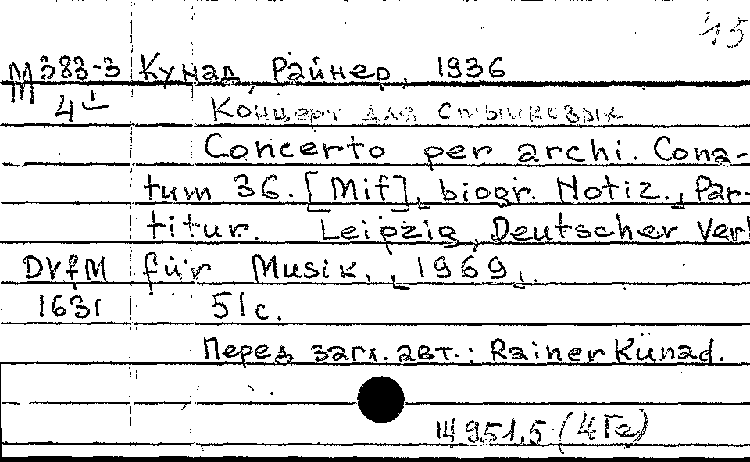 45
М 383-3 Кунад, Райнер, 1936
4
Концерт для смычковых
Concerto per archi. Cona-
tum 36. [Mit], biogr. Notiz., Par-
titur. Leipzig, Deutscher Verl
DVfM für Musik, 1969.
1631 51с.
Перед загл. авт.: Rainer Künad.
14951,5 (4Ге)